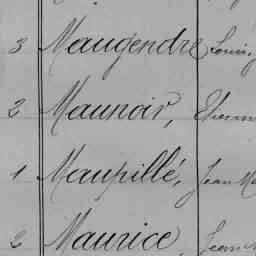 3 Maugendre Louis,
2 Maunoir, Etienn
1 Maupillé, Jean Ma
2 Maurice, Jean